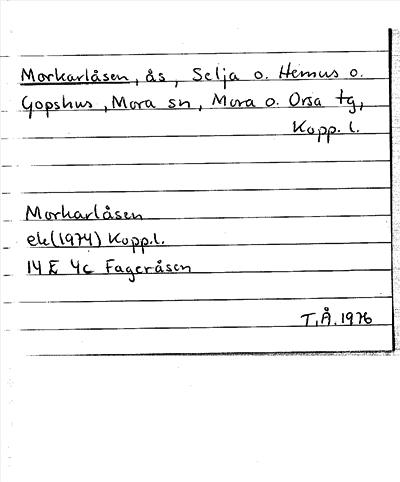 Morkarlåsen, ås, Selja o. Hemus o.
Gopshus, Mora sn, Mora o. Orsa tg,
Kopp. l.
Morkarlåsen
ek(1974) Kopp.l.
14 E 4c Fageråsen
T.Å. 1976